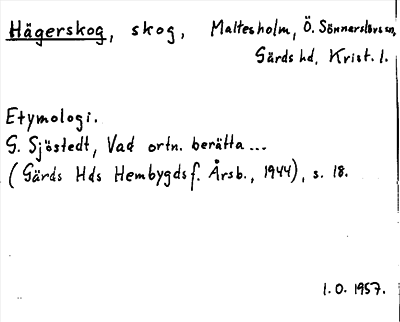 Hägerskog, skog, Maltesholm, Ö. Sönnarslövs sn,
Gärds hd, Krist. l.
Etymologi.
G. Sjöstedt, Vad ortn. berätta...
(Gärds Hds Hembygdsf. Årsb., 1944), s. 18.
I.O. 1957.